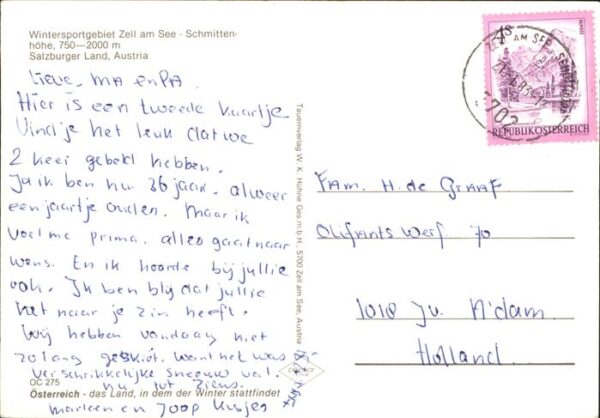 Wintersportgebiet Zell am See - Schmitten-
höhe, 750—2000 m
Salzburger Land, Austria
Lieve, MA en PA.
Hier is een tweede kaartje
Vind je het leuk dat we
2 keer gebeld hebben.
Ja ik ben nu 36 jaar. alweer
een jaartje ouder. Maar ik
voel me prima. alles gaat naar
wens. En ik hoorde bij jullie
ook. Ik ben blij dat jullie
het naar je zin heeft.
Wij hebben vandaag niet
zo lang geskiet. want het was
verschrikkelijke sneeuw val.
nu tot ziens.
marleen en Joop Kusjes
OC 275
Österreich - das Land, in dem der Winter stattfindet
Tauernverlag W. K. Hühne Ges.m.b.H., 5700 Zell am See, Austria
S
4
REPUBLIK ÖSTERREICH
ZELL AM SEE - SCHMITTENHÖHE
5702
FAM. H. de GRAAF
Olifants werf 70
1018 JV. A'dam
Holland